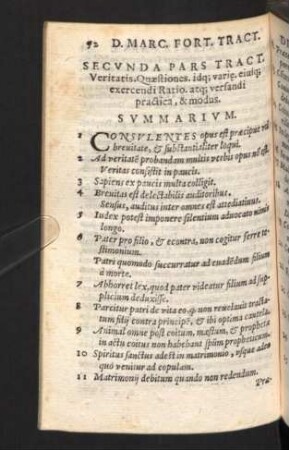 92 D. MARC. FORT. TRACT.
SECVNDA PARS TRACT.
Veritatis. Quæstiones. idq; varię. eiusq;
exercendi Ratio. atq; versandi
practica, & modus.
SVMMARIVM.
1 CONSVLENTES opus est præcipue
breuitate, & substantialiter loqui.
2 Ad veritatē probandam multis verbis opus nō est.
Veritas consistit in paucis.
3 Sapiens ex paucis multa colligit.
4 Breuitas est delectabilis auditoribus.
Sensus, auditus inter omnes est attediatiuus.
5 Index potest imponere silentium aduocato nimis
longo.
6 Pater pro filio, & econtra, non cogitur ferre te-
stimonium.
Patri quomodo succurratur ad euadēdum filium
à morte.
7 Abhorret lex, quod pater videatur filium ad sup-
plicium deduxisse.
8 Parcitur patri de vita eo q̃ non reuelauit tracta-
tum filij contra principē, & ibi optima cautela.
9 Animal omne post coitum, mæstum, & prophetæ
in actu coitus non habebant spūm propheticum.
10 Spiritus sanctus adest in matrimonio, vsque adeo
quò venitur ad copulam.
11 Matrimonij debitum quando non redendum.